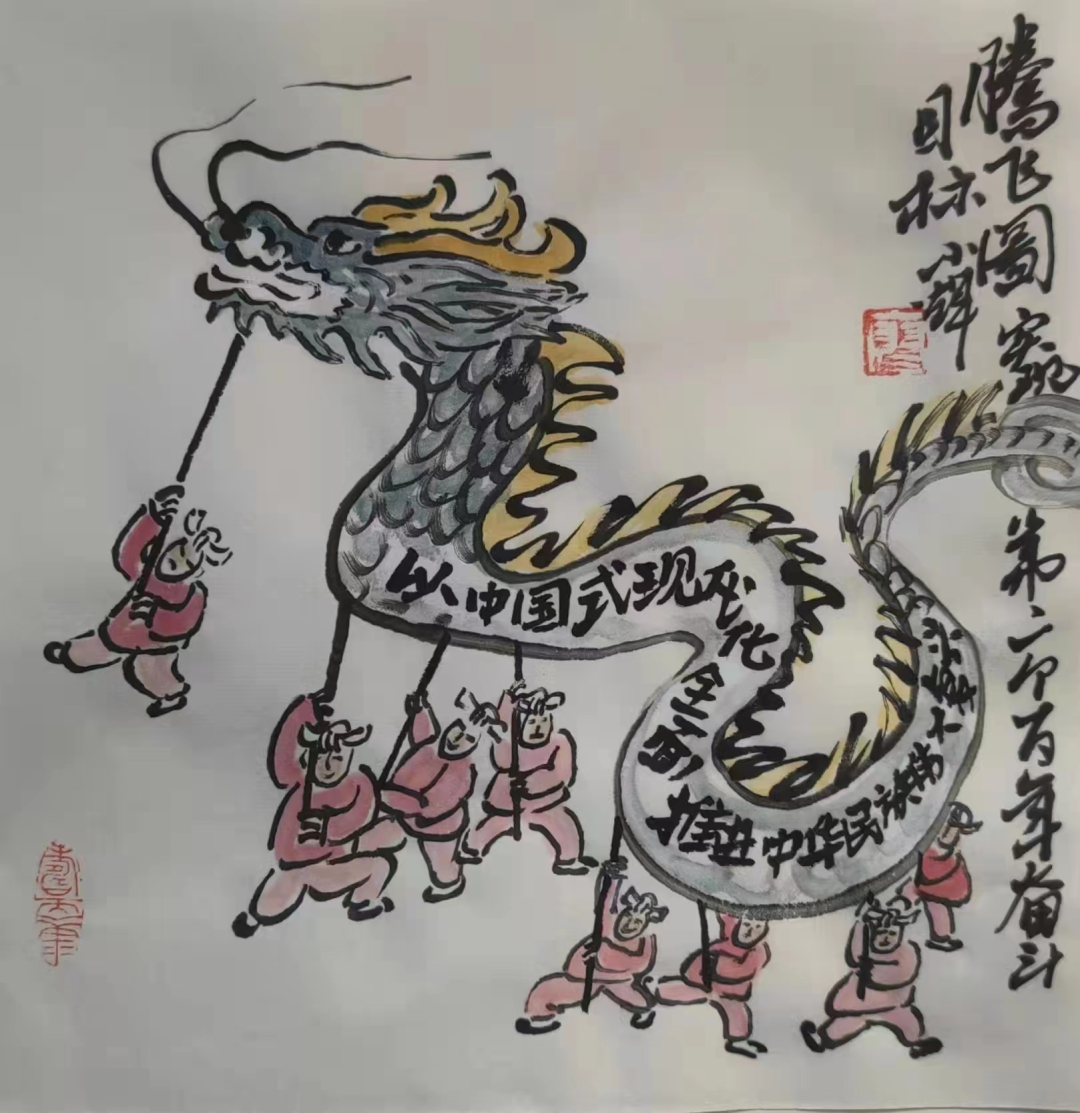 腾飞图 实现第二个百年奋斗
目标 小辉
以中国式现代化全面推进中华民族伟大复兴